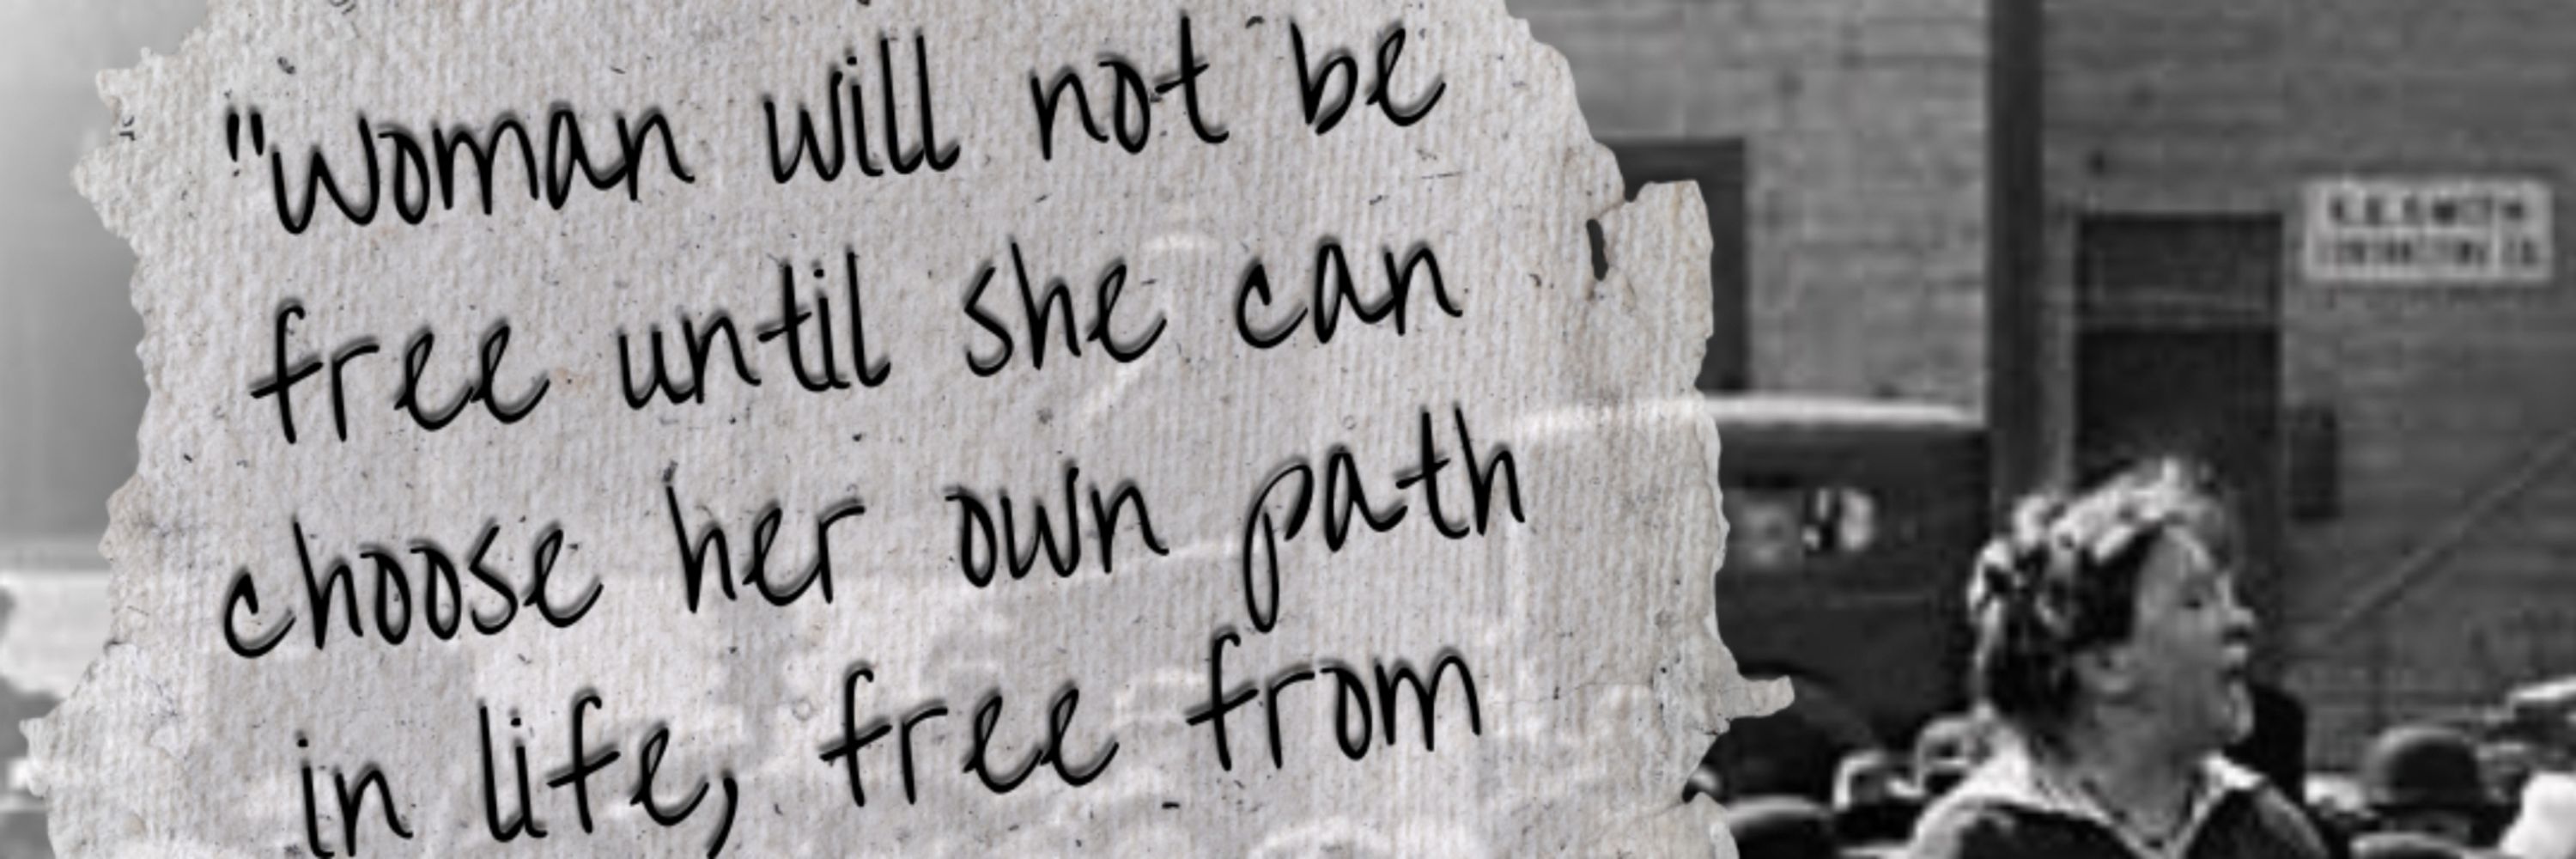 "Woman will not be
free until she can
choose her own path
in life, free from